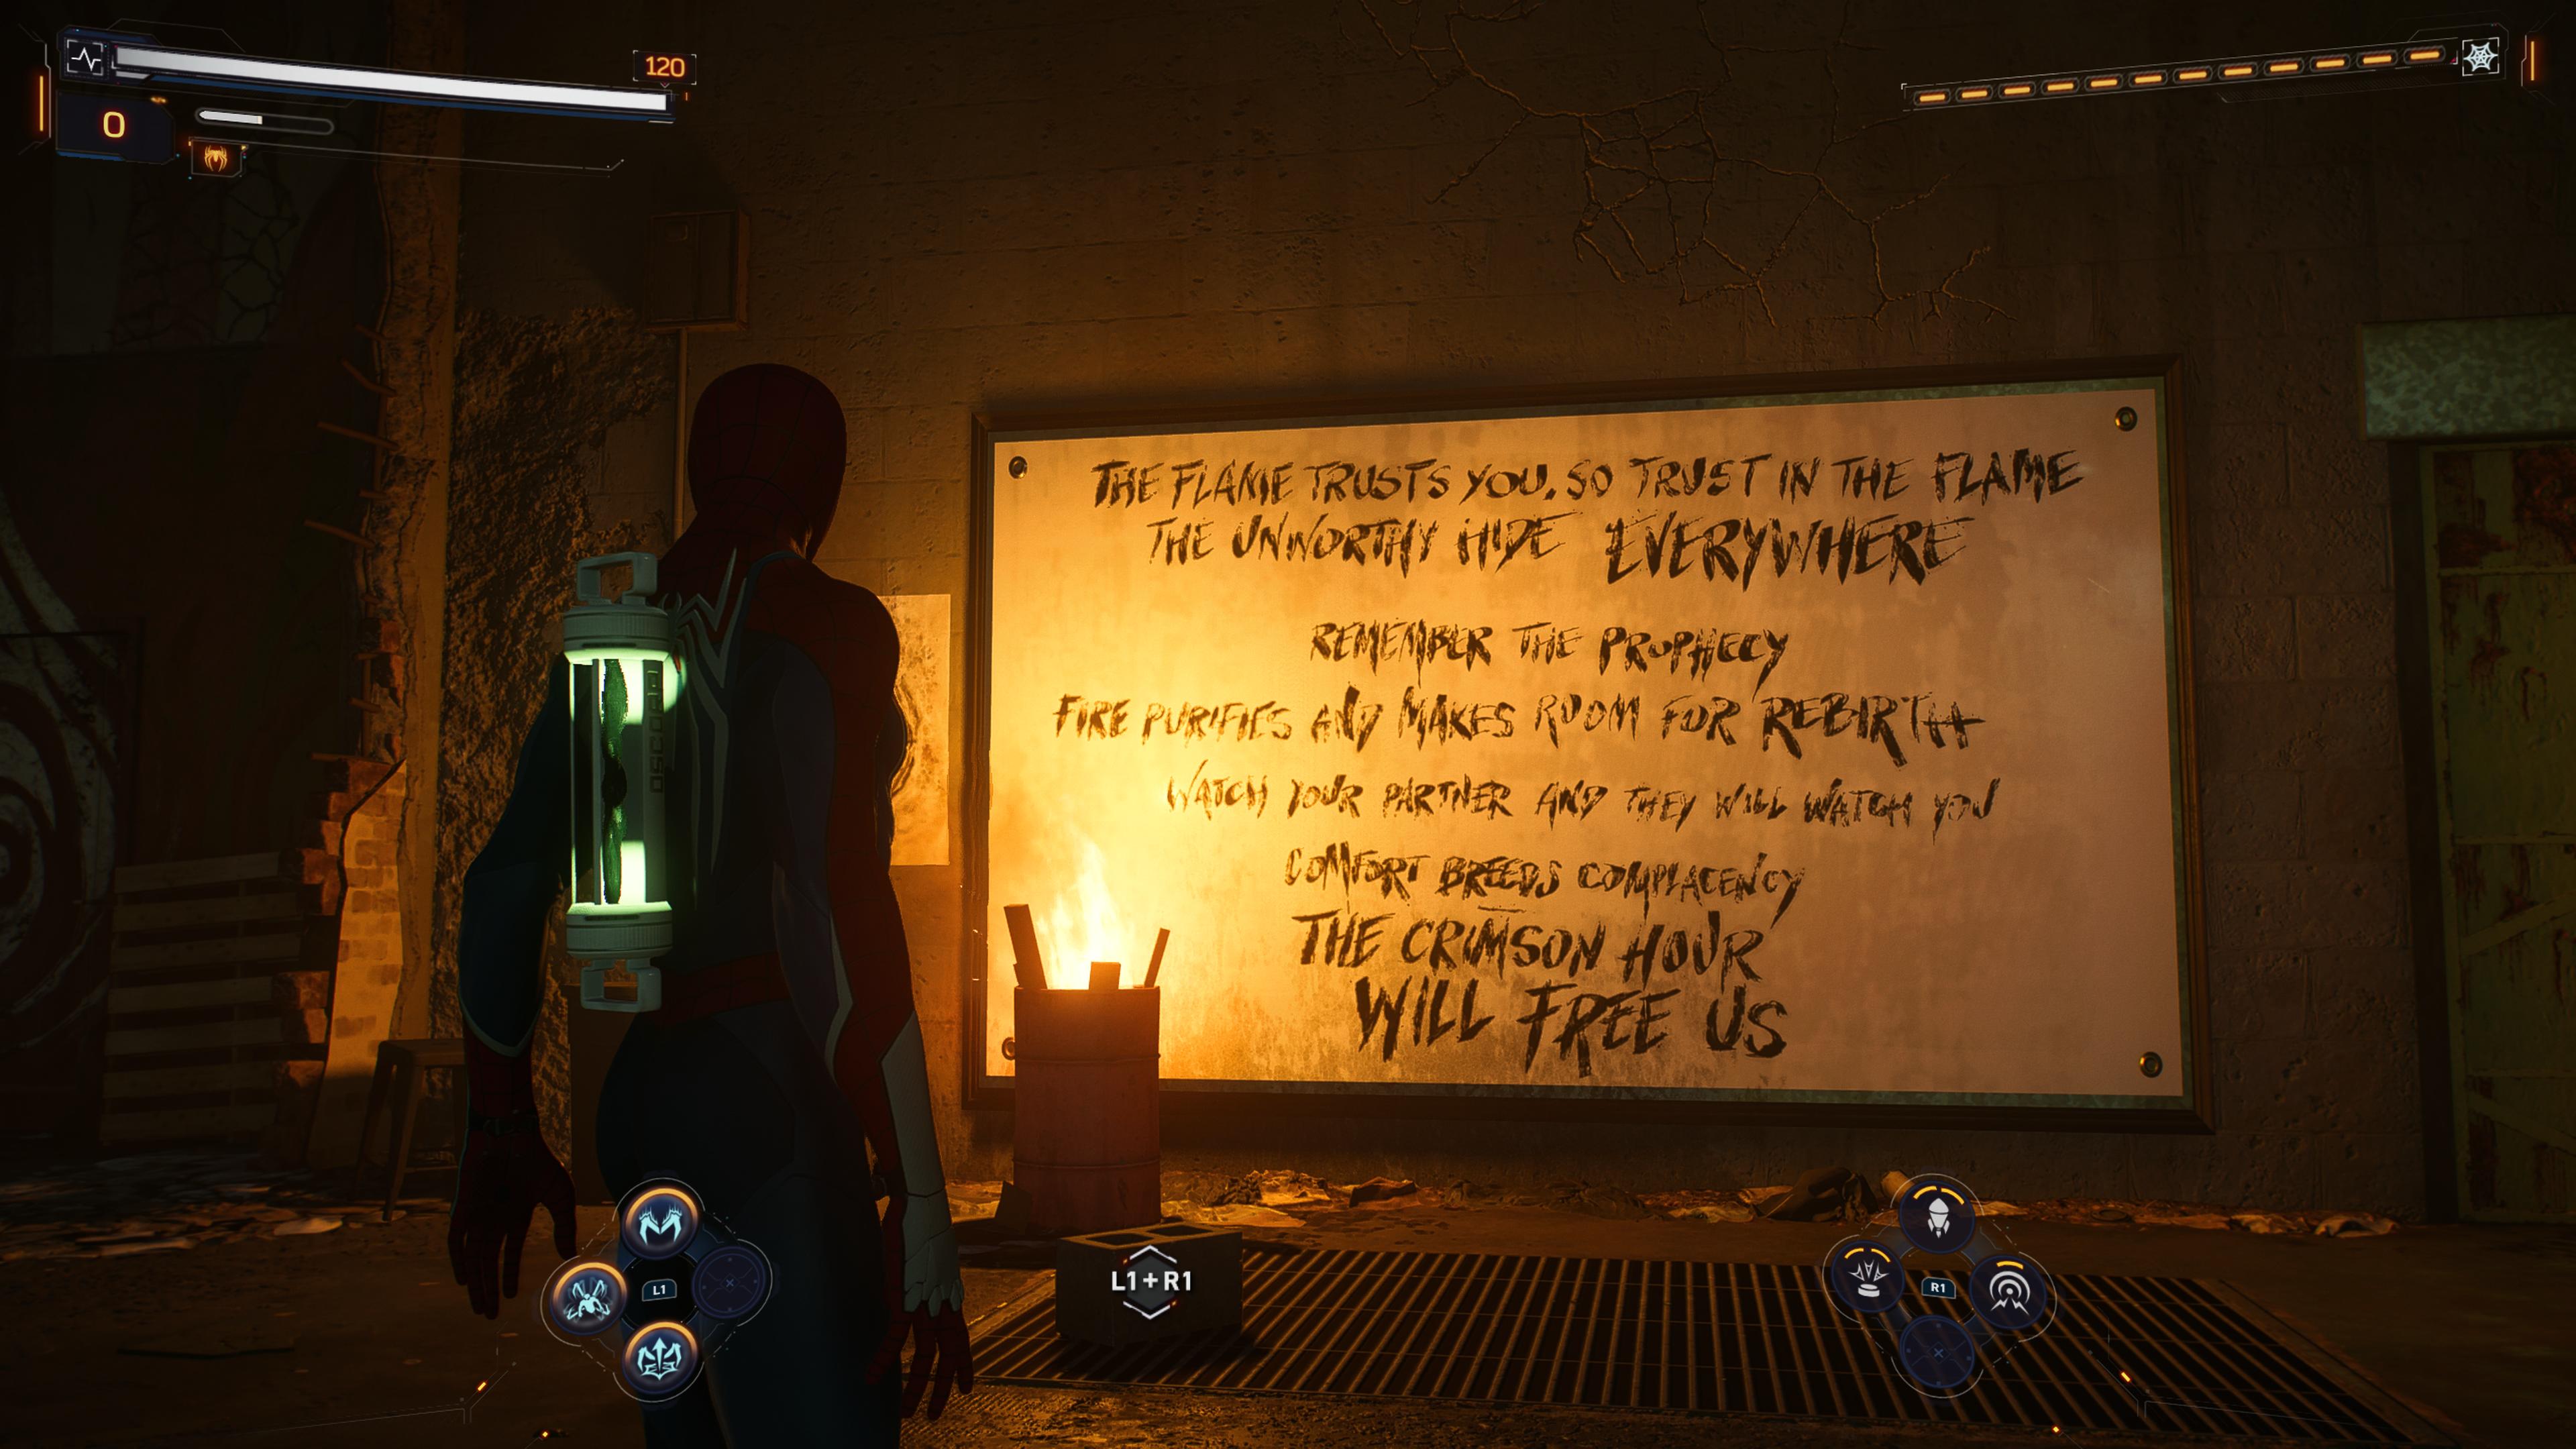 120
0
THE FLAME TRUSTS YOU. SO TRUST IN THE FLAME
THE UNWORTHY HIDE EVERYWHERE
REMEMBER THE PROPHECY
FIRE PURIFIES AND MAKES ROOM FOR REBIRTH
WATCH YOUR PARTNER AND THEY WILL WATCH YOU
COMFORT BREEDS COMPLACENCY
THE CRIMSON HOUR
WILL FREE US
OSCORP
L1
L1+R1
R1